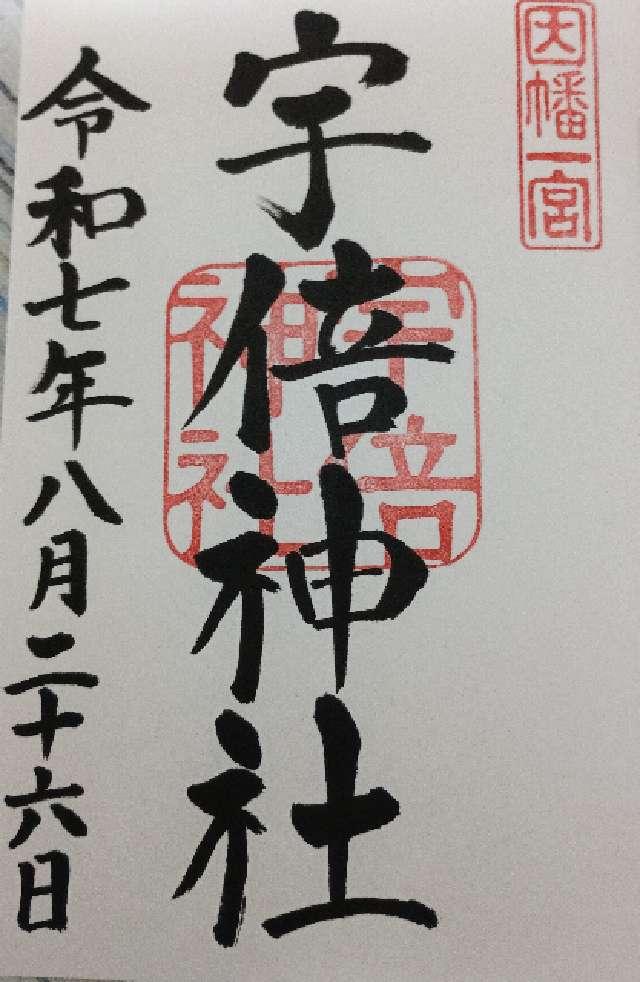 因幡一宮
宇倍神社
宇倍神社
令和七年八月二十六日